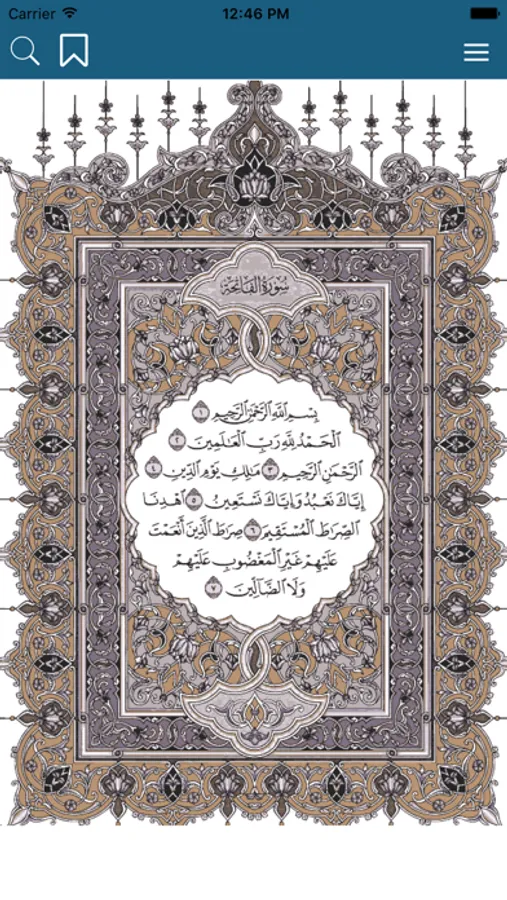 Carrier 12:46 PM
سُورَةُ الفَاتِحَةِ
بِسْمِ ٱللَّهِ ٱلرَّحْمَٰنِ ٱلرَّحِيمِ ١
ٱلْحَمْدُ لِلَّهِ رَبِّ ٱلْعَـٰلَمِينَ ٢
ٱلرَّحْمَٰنِ ٱلرَّحِيمِ ٣ مَـٰلِكِ يَوْمِ ٱلدِّينِ ٤
إِيَّاكَ نَعْبُدُ وَإِيَّاكَ نَسْتَعِينُ ٥ ٱهْدِنَا
ٱلصِّرَٰطَ ٱلْمُسْتَقِيمَ ٦ صِرَٰطَ ٱلَّذِينَ أَنْعَمْتَ
عَلَيْهِمْ غَيْرِ ٱلْمَغْضُوبِ عَلَيْهِمْ
وَلَا ٱلضَّآلِّينَ ٧